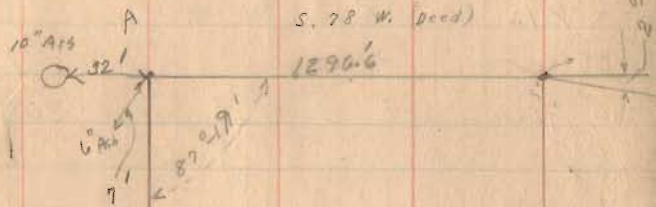 A S. 78 W. (Deed)
10" Ash
32' 1290.6'
6" Ash 87°-19'
7'